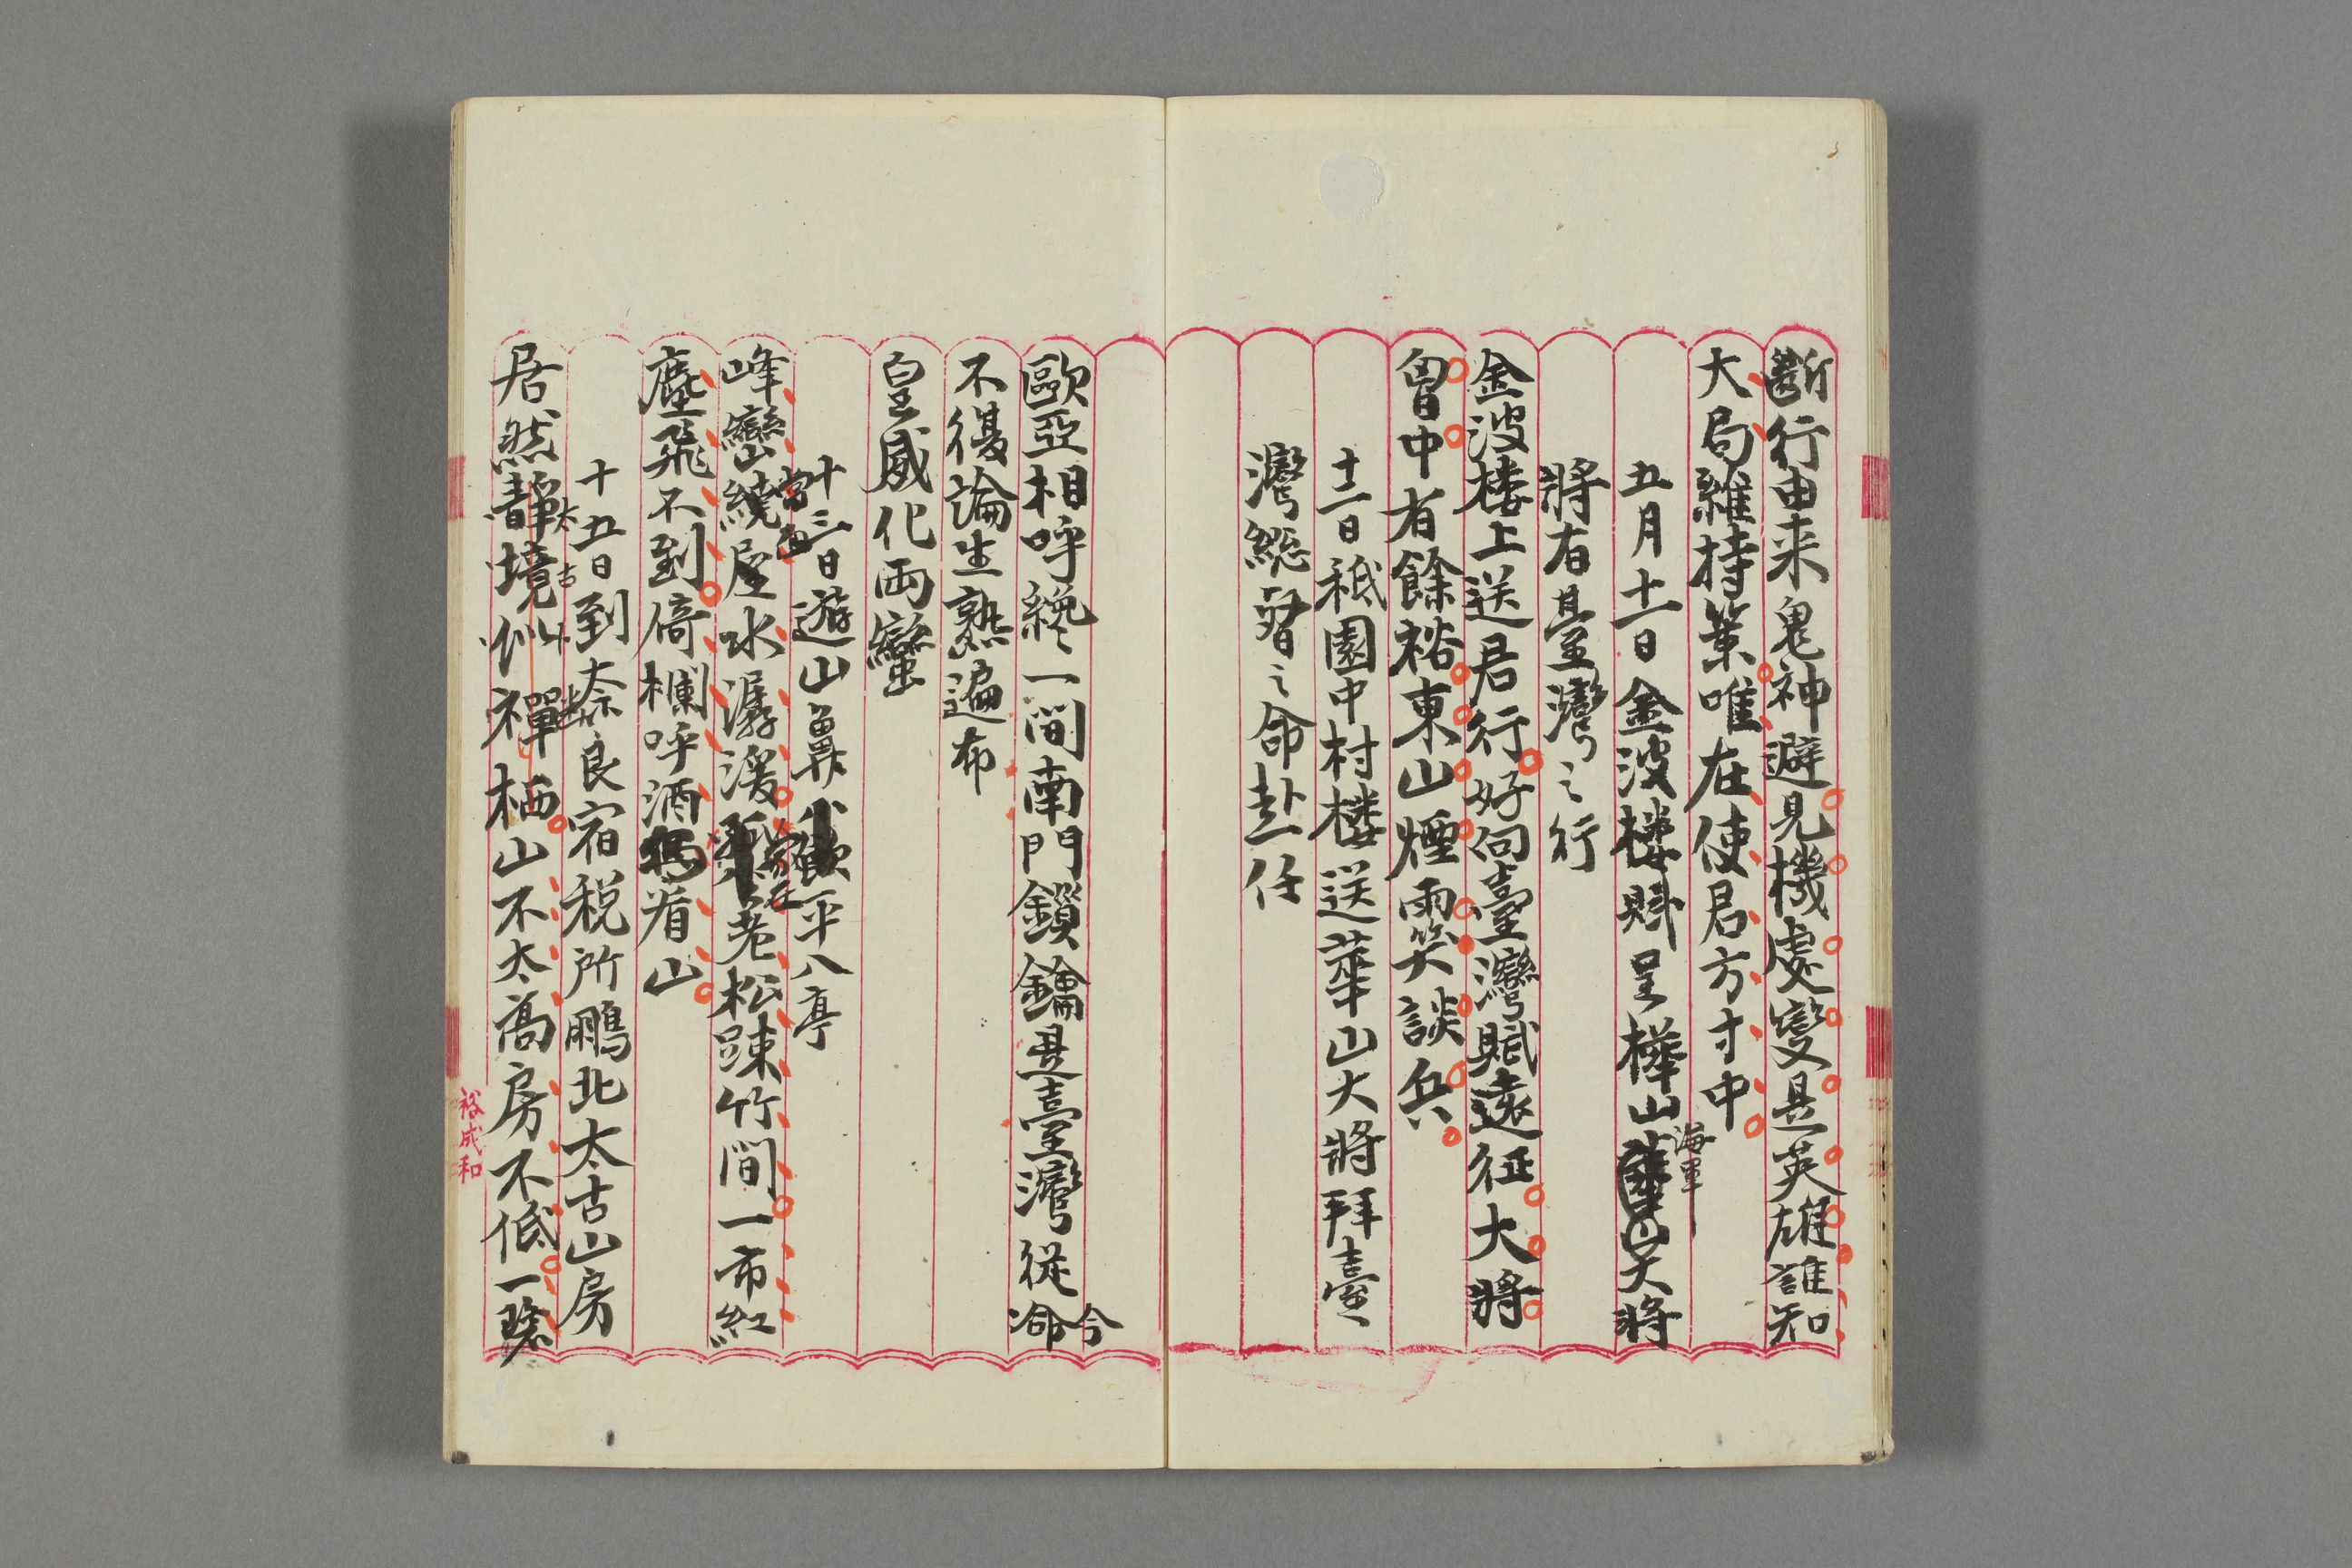 斷行由来鬼神避見機處變是英雄誰知
大局維持策唯在使君方寸中
五月十一日金波樓賦呈樺山海軍大將
將有臺灣之行
金波楼上送君行好向臺灣賦遠征大將
胷中有餘裕東山煙雨笑談兵
十二日祗園中村樓送華山大將拜臺
灣總督之命赴任
歐亞相呼纔一間南門鎖鑰是臺灣從今
不復論生熟遍布
皇威化両蠻
十三日遊山鼻平八亭
峰巒繞屋水潺湲老松踈竹間一市紅
塵飛不到倚欄呼酒看山
十五日到奈良宿税所鵬北太古山房
居然靜境似禪栖山不太高房不低一
太古
裕成和